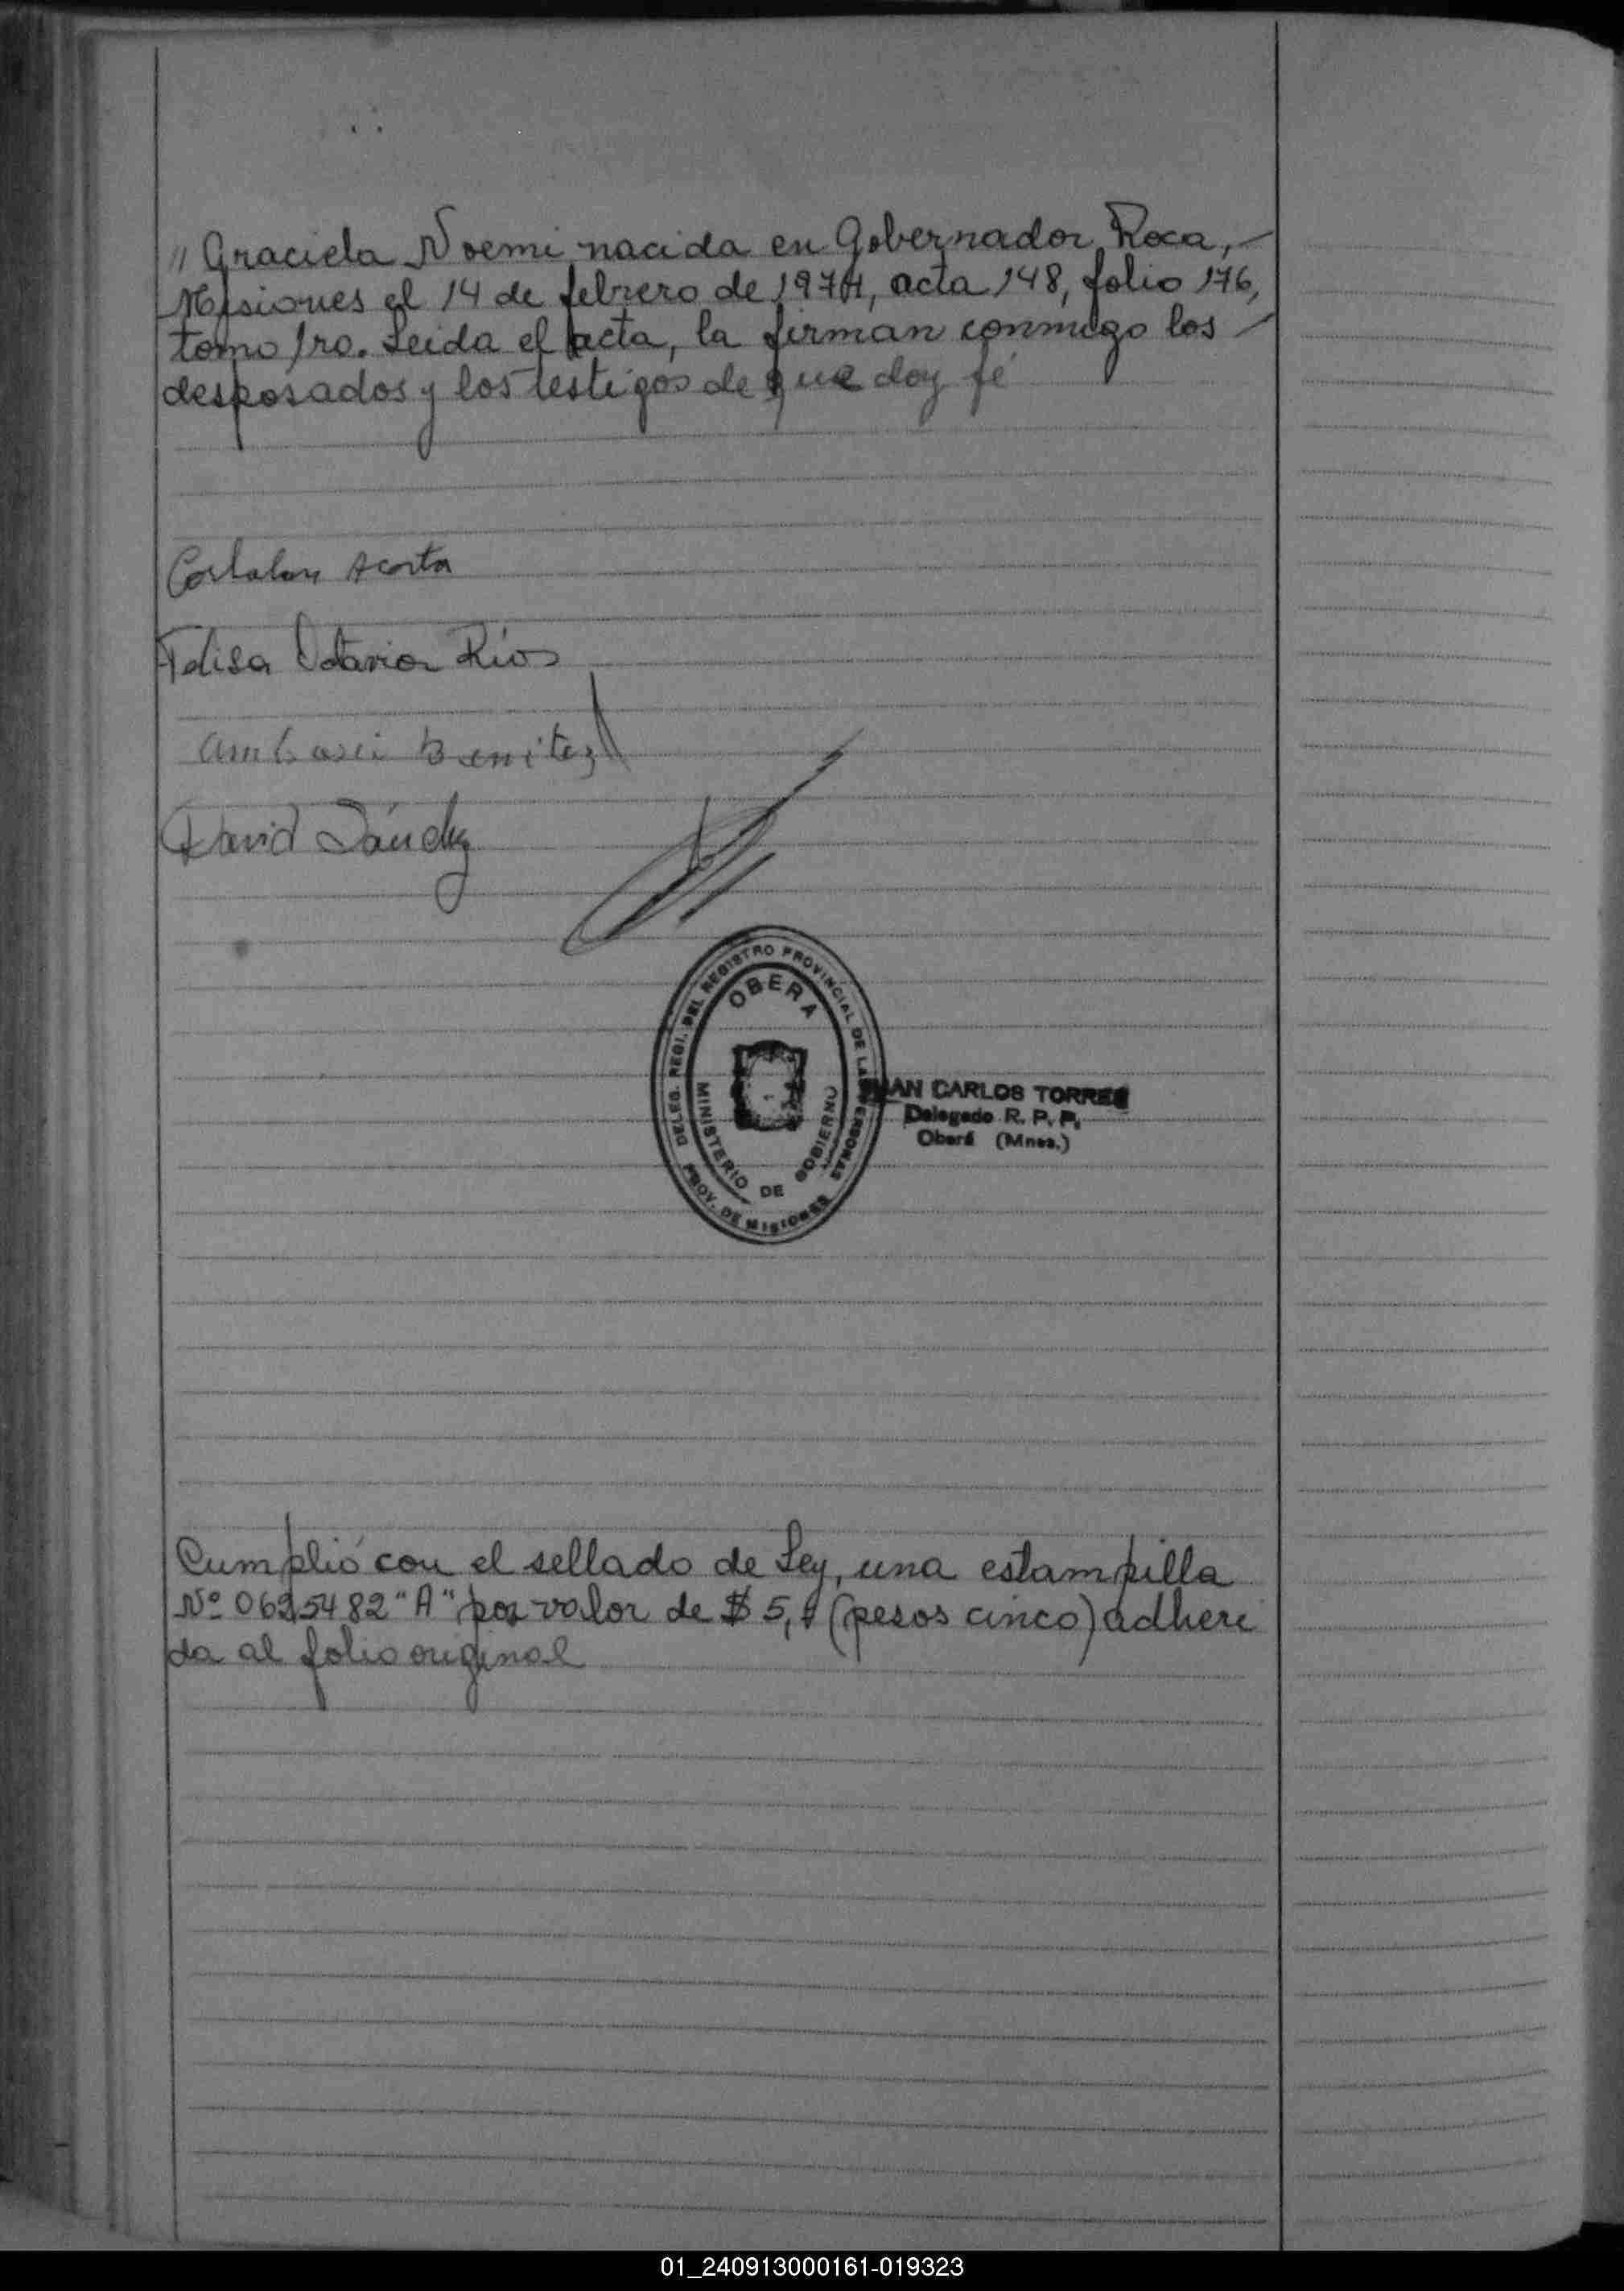 " Graciela Noemi nacida en Gobernador Roca, -
Misiones el 14 de febrero de 1974, acta 148, folio 176,
tomo 1ro. Leida el acta, la firman conmigo los -
desposados y los testigos de que doy fé
Acosta
Felisa Octavia Ríos
Benitez
David Sánchez
DELEG. REGI. DEL REGISTRO PROVINCIAL DE LAS PERSONAS
OBERA
MINISTERIO DE GOBIERNO
PROV. DE MISIONES
JUAN CARLOS TORRES
Delegado R. P. P.
Oberá (Mnes.)
Cumplió con el sellado de Ley, una estampilla
Nº 0625482 "A" por valor de $ 5, (pesos cinco) adheri
da al folio original
01_240913000161-019323